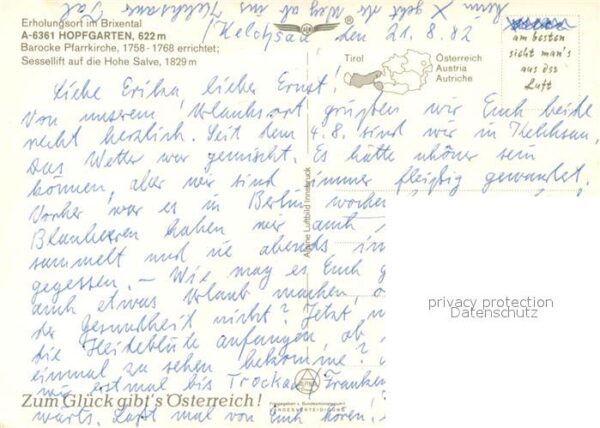 Erholungsort im Brixental
A-6361 HOPFGARTEN, 622 m
Barocke Pfarrkirche, 1758-1768 errichtet;
Sessellift auf die Hohe Salve, 1829 m
Kelchsau, den 21.8.82
Tirol
Österreich
Austria
Autriche
am besten
sieht man's
aus der
Luft
Liebe Erika, lieber Ernst!
Von unserem Urlaubsort grüßen wir Euch beide
recht herzlich. Seit dem 4.8. sind wir in Kelchsau.
Das Wetter war gemischt. Es hätte schöner sein
können, aber wir sind immer fleißig gewandert.
Vorher war es in Berlin
Blaubeeren haben wir auch
sammelt und sie abends im
gegessen. – Wie mag es Euch g
auch etwas Urlaub machen, o
der Gesundheit nicht? Jetzt
die Heideblüte anfangen, ob
einmal zu sehen bekomme?
wir erstmal bis Trockau, Franken
wärts. Laßt mal von Euch hören!
Alpine Luftbild Innsbruck
privacy protection
Datenschutz
Zum Glück gibt's Österreich!